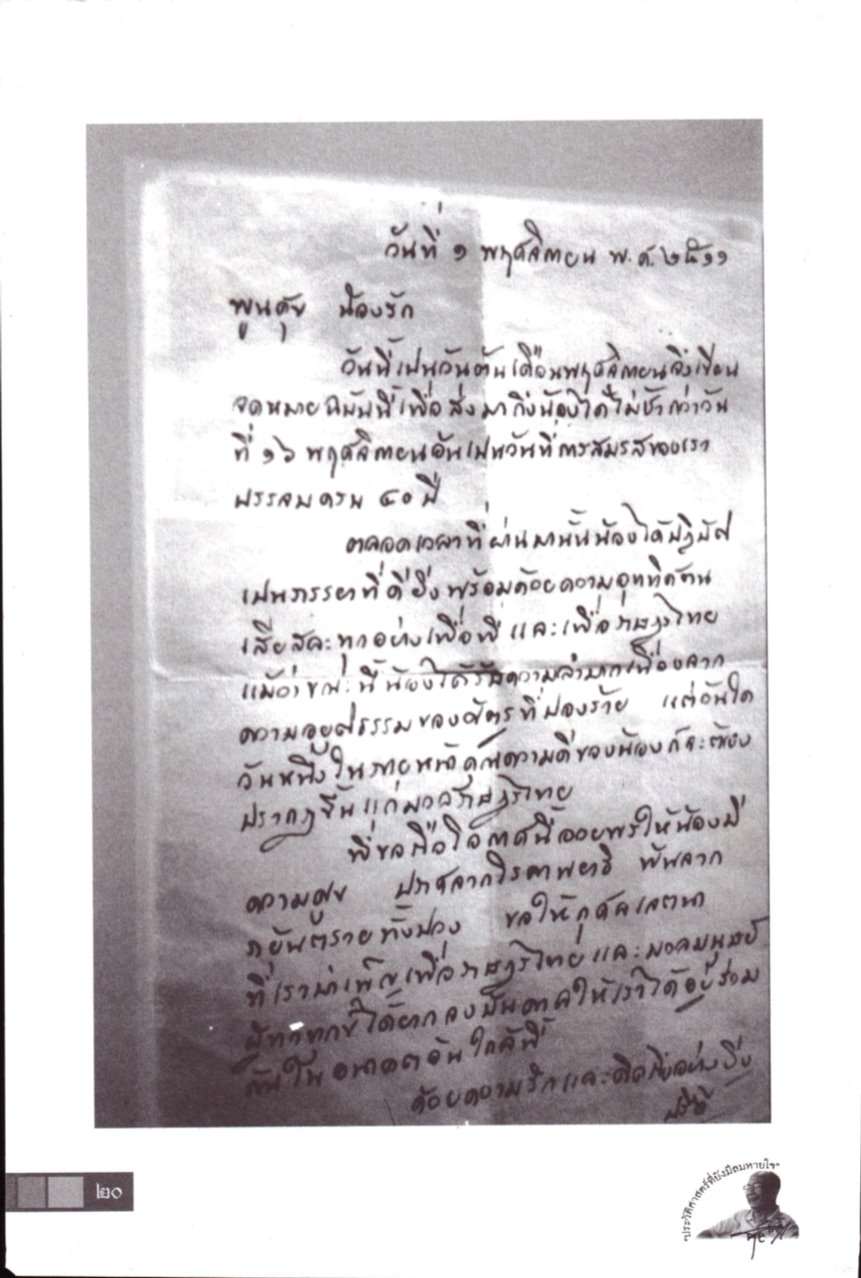 วันที่ ๑ พฤศจิกายน พ.ศ. ๒๕๑๑
พูนศุข น้องรัก
วันนี้เปนวันต้นเดือนพฤศจิกายนจึงเขียน
จดหมายฉบับนี้เพื่อส่งมาถึงน้องได้ไม่ช้ากว่าวัน
ที่ ๑๖ พฤศจิกายนอันเปนวันที่การสมรสของเรา
บรรจบครบ ๔๐ ปี
ตลอดเวลาที่ผ่านมานั้นน้องได้ปฏิบัติ
เปนภรรยาที่ดียิ่งพร้อมด้วยความอุททิศตน
เสียสละทุกอย่างเพื่อพี่และเพื่อราษฎรไทย
แม้ว่าขณะนี้น้องได้รับความลำบากเนื่องจาก
ความอยุติธรรมของศัตรูที่ปองร้าย แต่วันใด
วันหนึ่งในภายหน้าคุณความดีของน้องก็จะต้อง
ปรากฏขึ้นแก่มวลราษฎรไทย
พี่ขอถือโอกาศนี้อวยพรให้น้องมี
ความศุข ปราศจากโรคาพยาธิ พ้นจาก
ภยันตรายทั้งปวง ขอให้กุศลเจตนา
ที่เราบำเพ็ญเพื่อราษฎรไทยและมวลมนุษย์
ผู้ทุกข์ได้ยากจงบันดาลให้เราได้อยู่ร่วม
กันในอนาคตอันใกล้นี้
ด้วยความรักและคิดถึงอย่างยิ่ง
ปรีดี
๒๐
"ประวัติศาสตร์ที่ยังมีลมหายใจ"